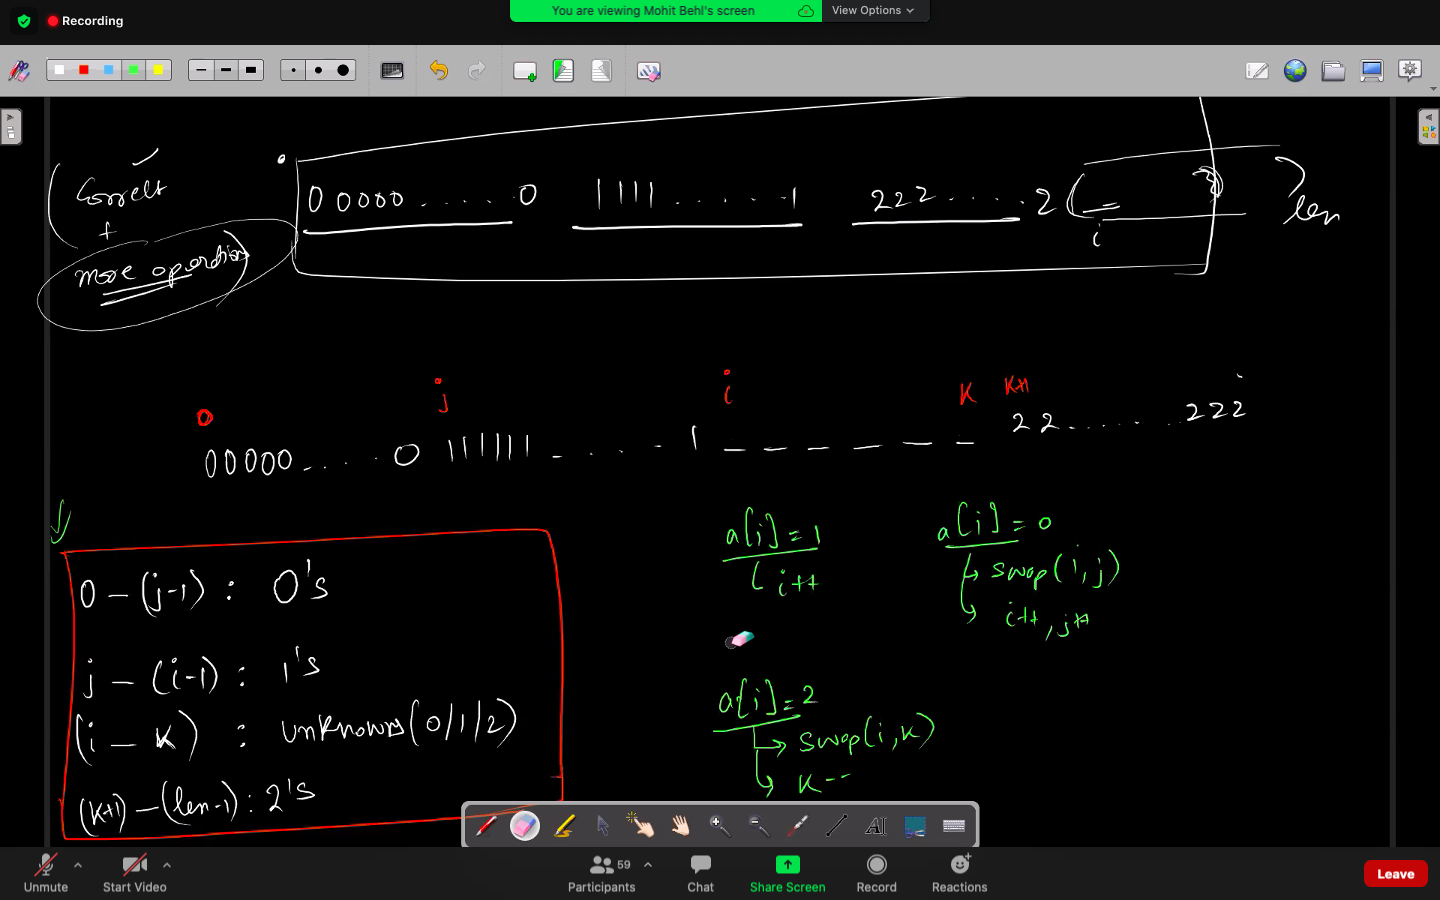 Recording
You are viewing Mohit Behl's screen
View Options
Correct
+
more operations
0 0000 ...... 0 1111 ...... 1 222 ..... 2 ( _ )
i
len
0 j i K K++
00000.....0 1111111 _ . . . - 1 _ _ _ _ _ _ 22.......222
0 – (j-1) : 0's
j – (i-1) : 1's
(i – K) : unknowns (0/1/2)
(k+1) – (len-1) : 2's
a[i] = 1
i++
a[i] = 0
swap(i,j)
i++, j++
a[i] = 2
swap(i,k)
K--
AI
Unmute
Start Video
59
Participants
Chat
Share Screen
Record
Reactions
Leave